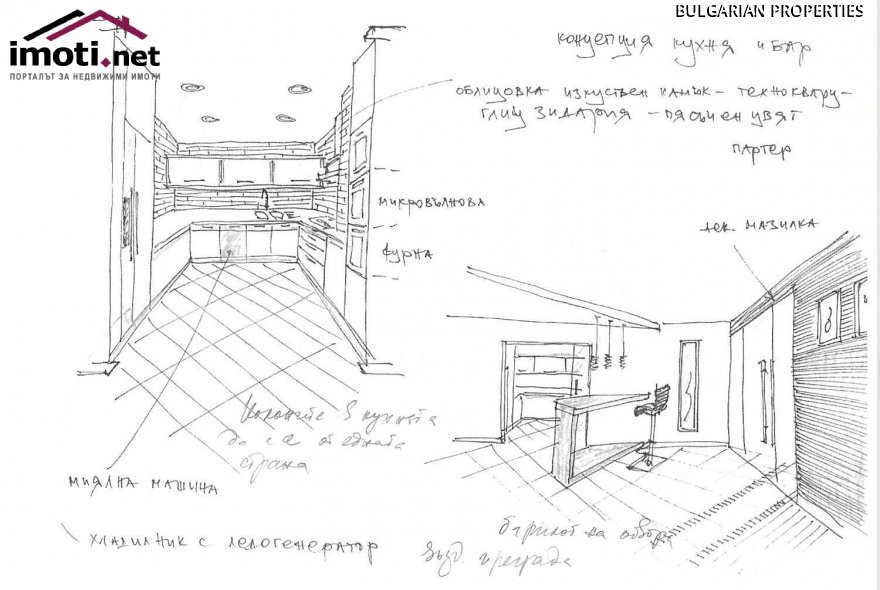 BULGARIAN PROPERTIES
imoti.net
ПОРТАЛЪТ ЗА НЕДВИЖИМИ ИМОТИ
концепция кухня и бар
ОБЛИЦОВКА изкуствен камък - техноквару-
глиц Зидария - пясъчен цвят
партер
микровълнова
фурна
лек. мазилка
в кухнята
да са от едната
страна
МИЯЛНА МАШИНА
хладилник с ледогенератор
на
преграда